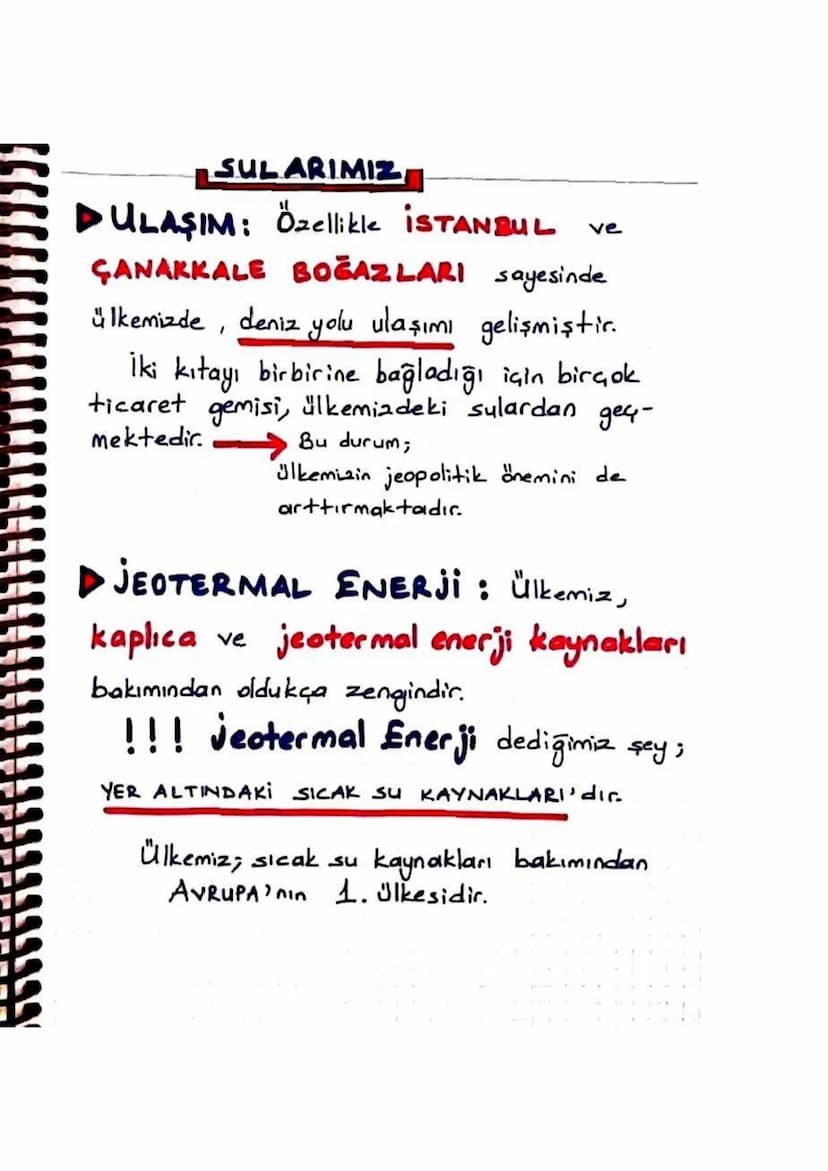 SULARIMIZ
ULAŞIM: Özellikle İSTANBUL ve
ÇANAKKALE BOĞAZLARI sayesinde
ülkemizde, deniz yolu ulaşımı gelişmiştir.
İki kıtayı birbirine bağladığı için birçok
ticaret gemisi, ülkemizdeki sulardan geç-
mektedir. → Bu durum;
ülkemizin jeopolitik önemini de
arttırmaktadır.
JEOTERMAL ENERJİ: Ülkemiz,
kaplıca ve jeotermal enerji kaynakları
bakımından oldukça zengindir.
!!! Jeotermal Enerji dediğimiz şey;
YER ALTINDAKİ SICAK SU KAYNAKLARI'dır.
Ülkemiz; sıcak su kaynakları bakımından
AVRUPA'nın 1. ülkesidir.